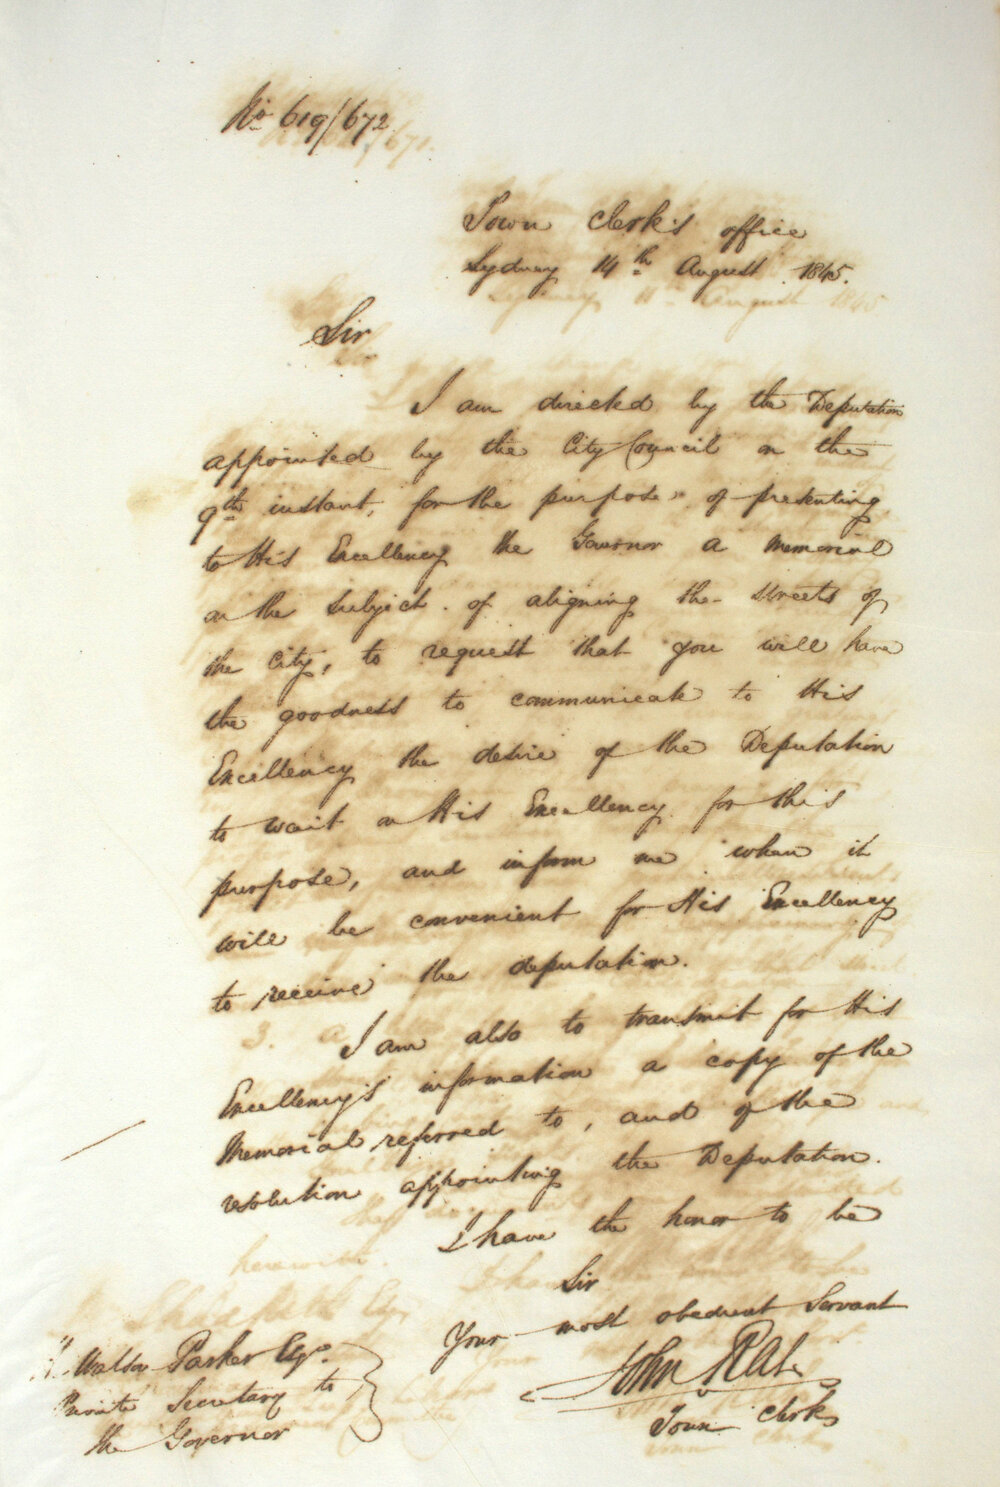 No 619/672
Town Clerk's office
Sydney 14th August 1845.
Sir
I am directed by the Deputation
appointed by the City Council on the
9th instant, for the purpose of presenting
to His Excellency the Governor a Memorial
on the subject of aligning the streets of
the City, to request that you will have
the goodness to communicate to His
Excellency the desire of the Deputation
to wait on His Excellency for this
purpose, and inform me when it
will be convenient for His Excellency
to receive the deputation.
I am also to transmit for His
Excellency's information a copy of the
Memorial referred to, and of the
resolution appointing the Deputation.
I have the honor to be
Sir
Your most obedient Servant
John Rae
Town Clerk
Parker Esqr.
Private Secretary to
the Governor